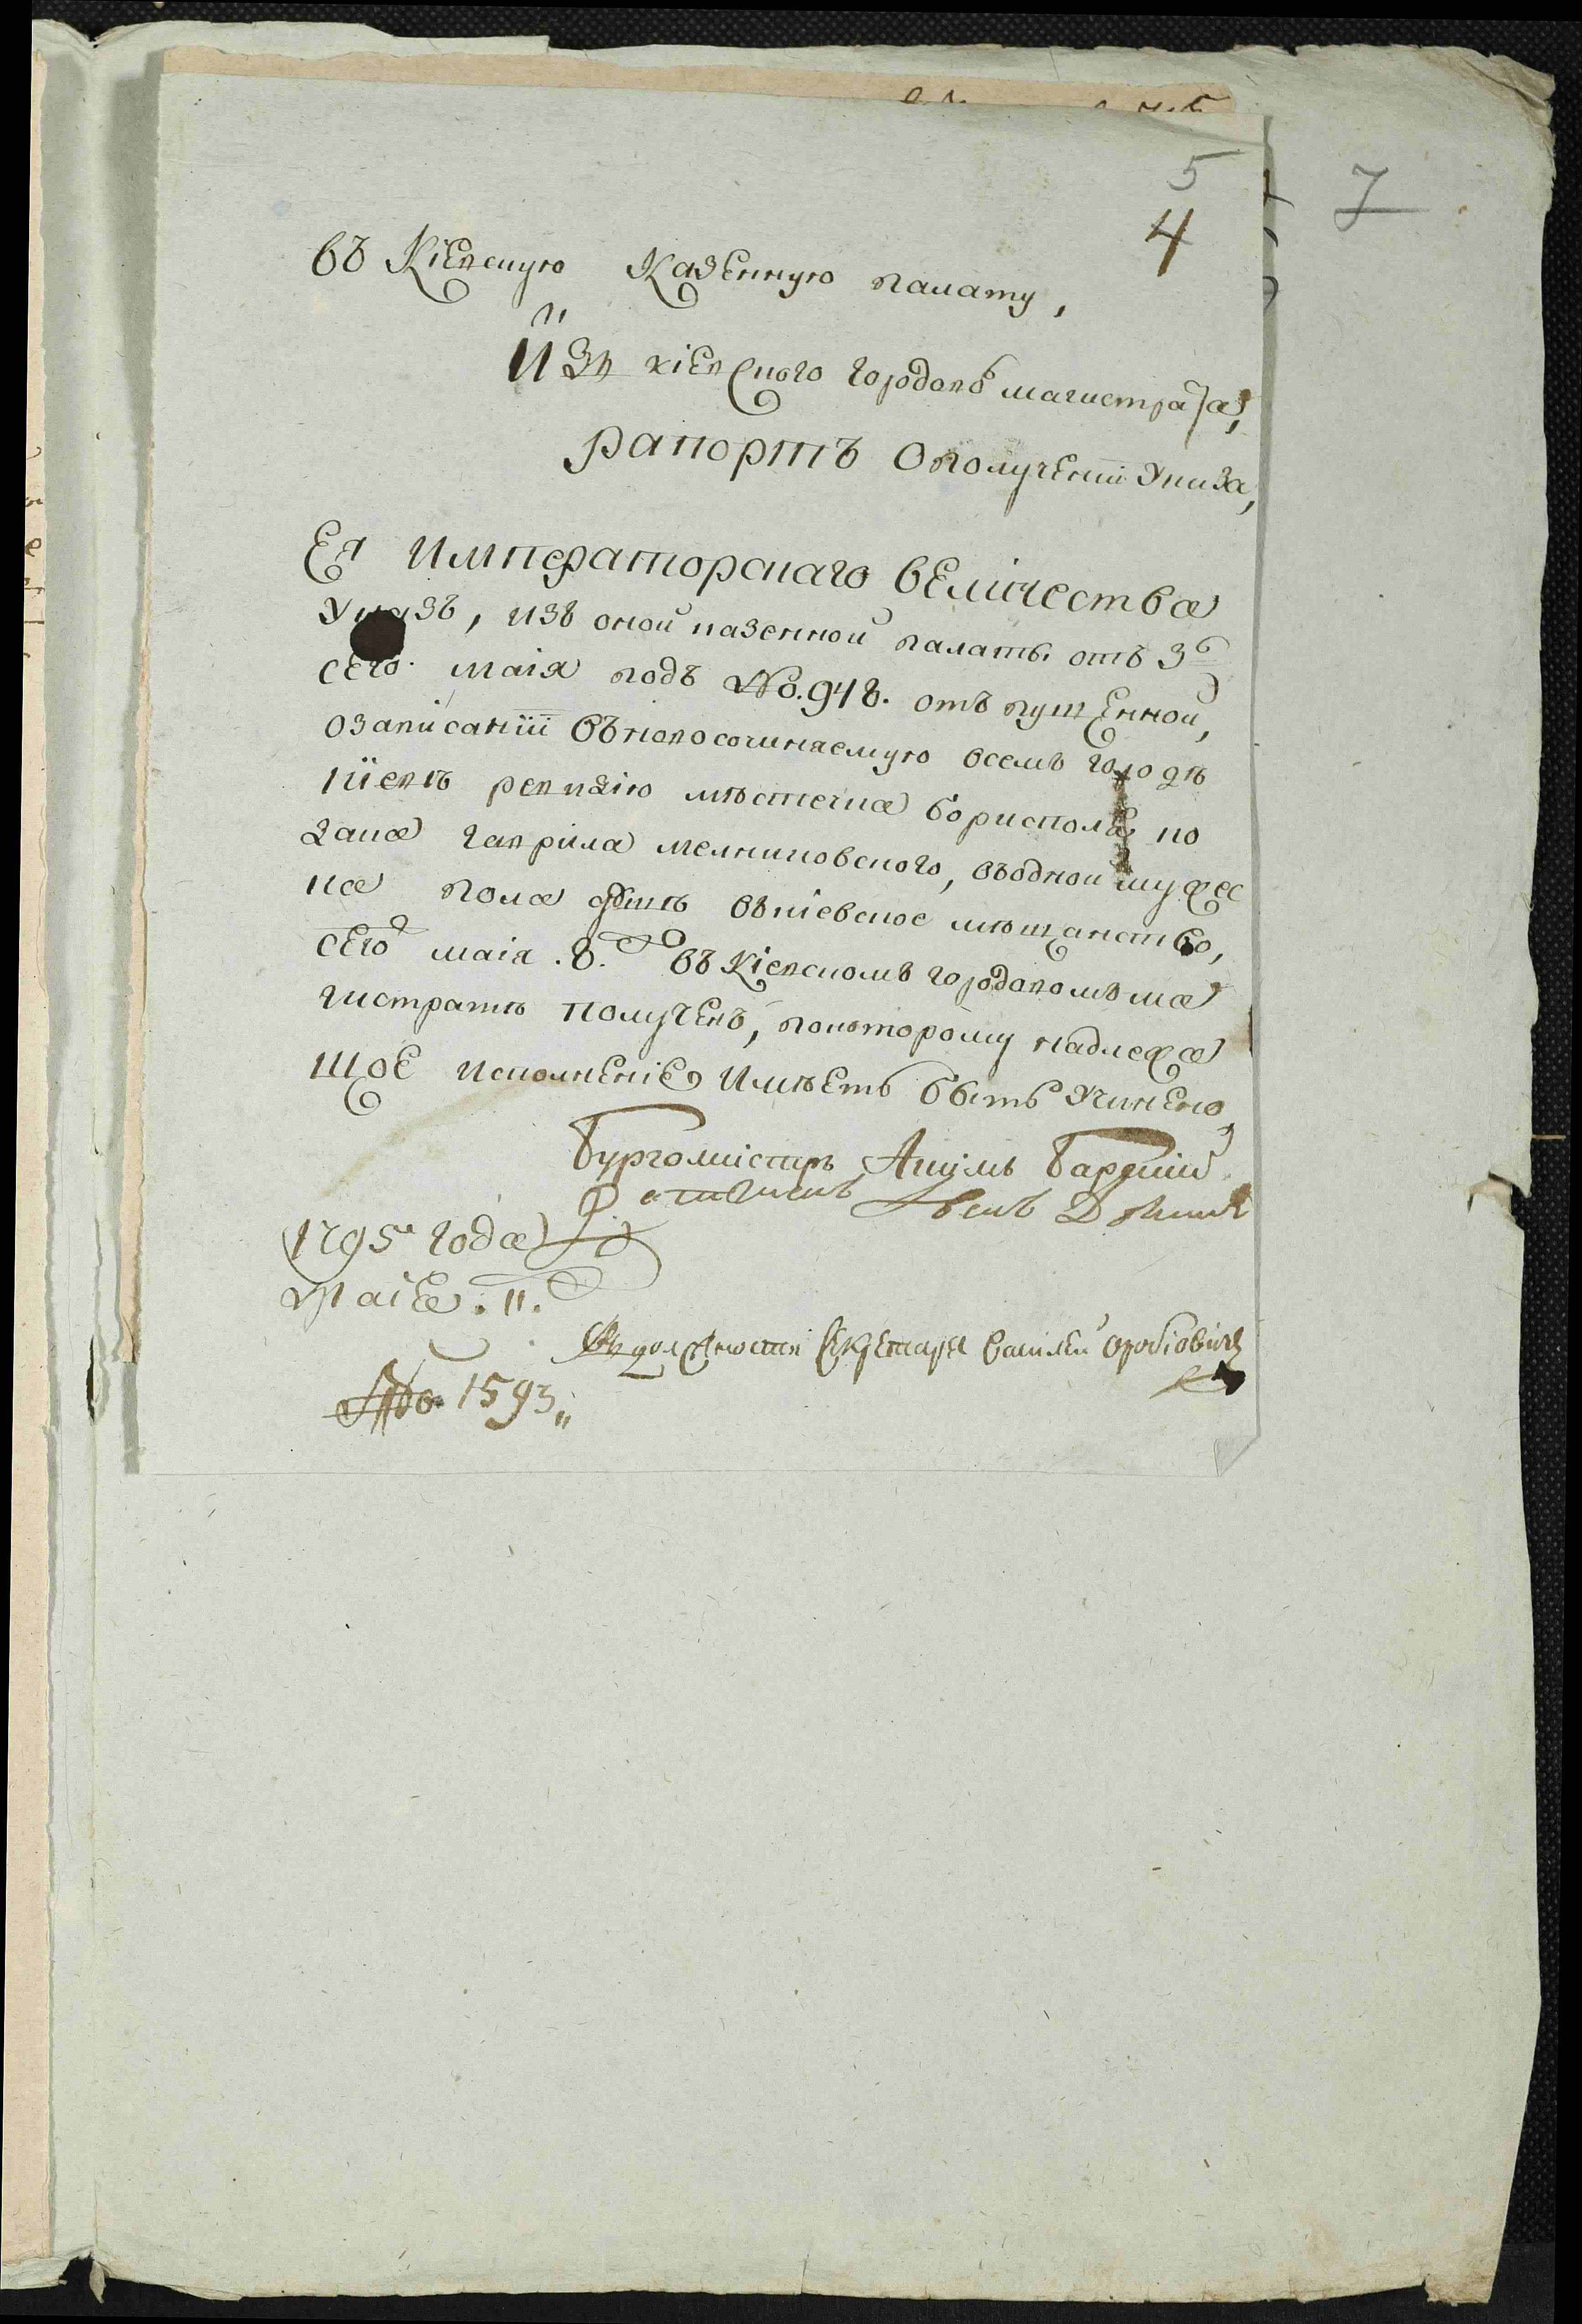 5
4
7
въ Кіевскую Казенную палату,
Изъ кіевского городовъ магистрата,
рапортъ О получении Указа,
Ея Императорскаго величества
Указъ, изъ оной казенной палаты отъ 3го
сего маія подъ No. 948. отъ пущенной,
озаписаніи въновосочиняемую осемъ городѣ
кіевѣ ревизію мѣстечка борисполя ко
зака гаврила мелниковского, въодной мужес
ка пола душѣ вкіевское мѣщанство,
сего маія .8. въ Кіевскомъ городовомъ ма
гистратѣ полученъ, покоторому надлежа
щое исполненіе имѣетъ быть Учинено,
Бургомистръ Бардкий
Ратманъ
1795 года
маіа .11.
Въ должности Секретаря Василей
No. 1593